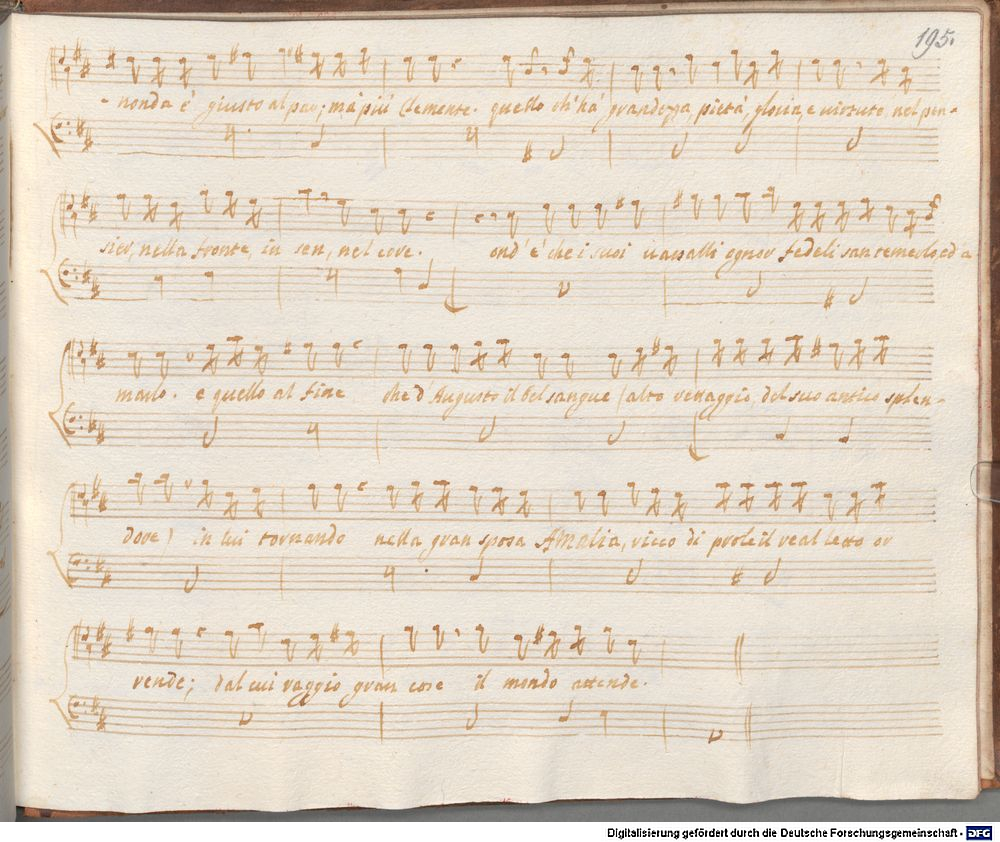 195.
- nonda è giusto al par; mà più Clemente. quello ch'hà grandezza, pietà, gloria, e virtute, nel pen-
sier, nella fronte, in sen, nel core. ond'è che i suoi vassalli ognor fedeli san temerlo, ed a
marlo. e quello al fine che d'Augusto il bel sangue (alto retaggio del suo antico splen-
dore) in lui tornando nella gran sposa Amalia, ricco di prole il real letto or
rende; dal cui raggio gran cose il mondo attende.
Digitalisierung gefördert durch die Deutsche Forschungsgemeinschaft - DFG